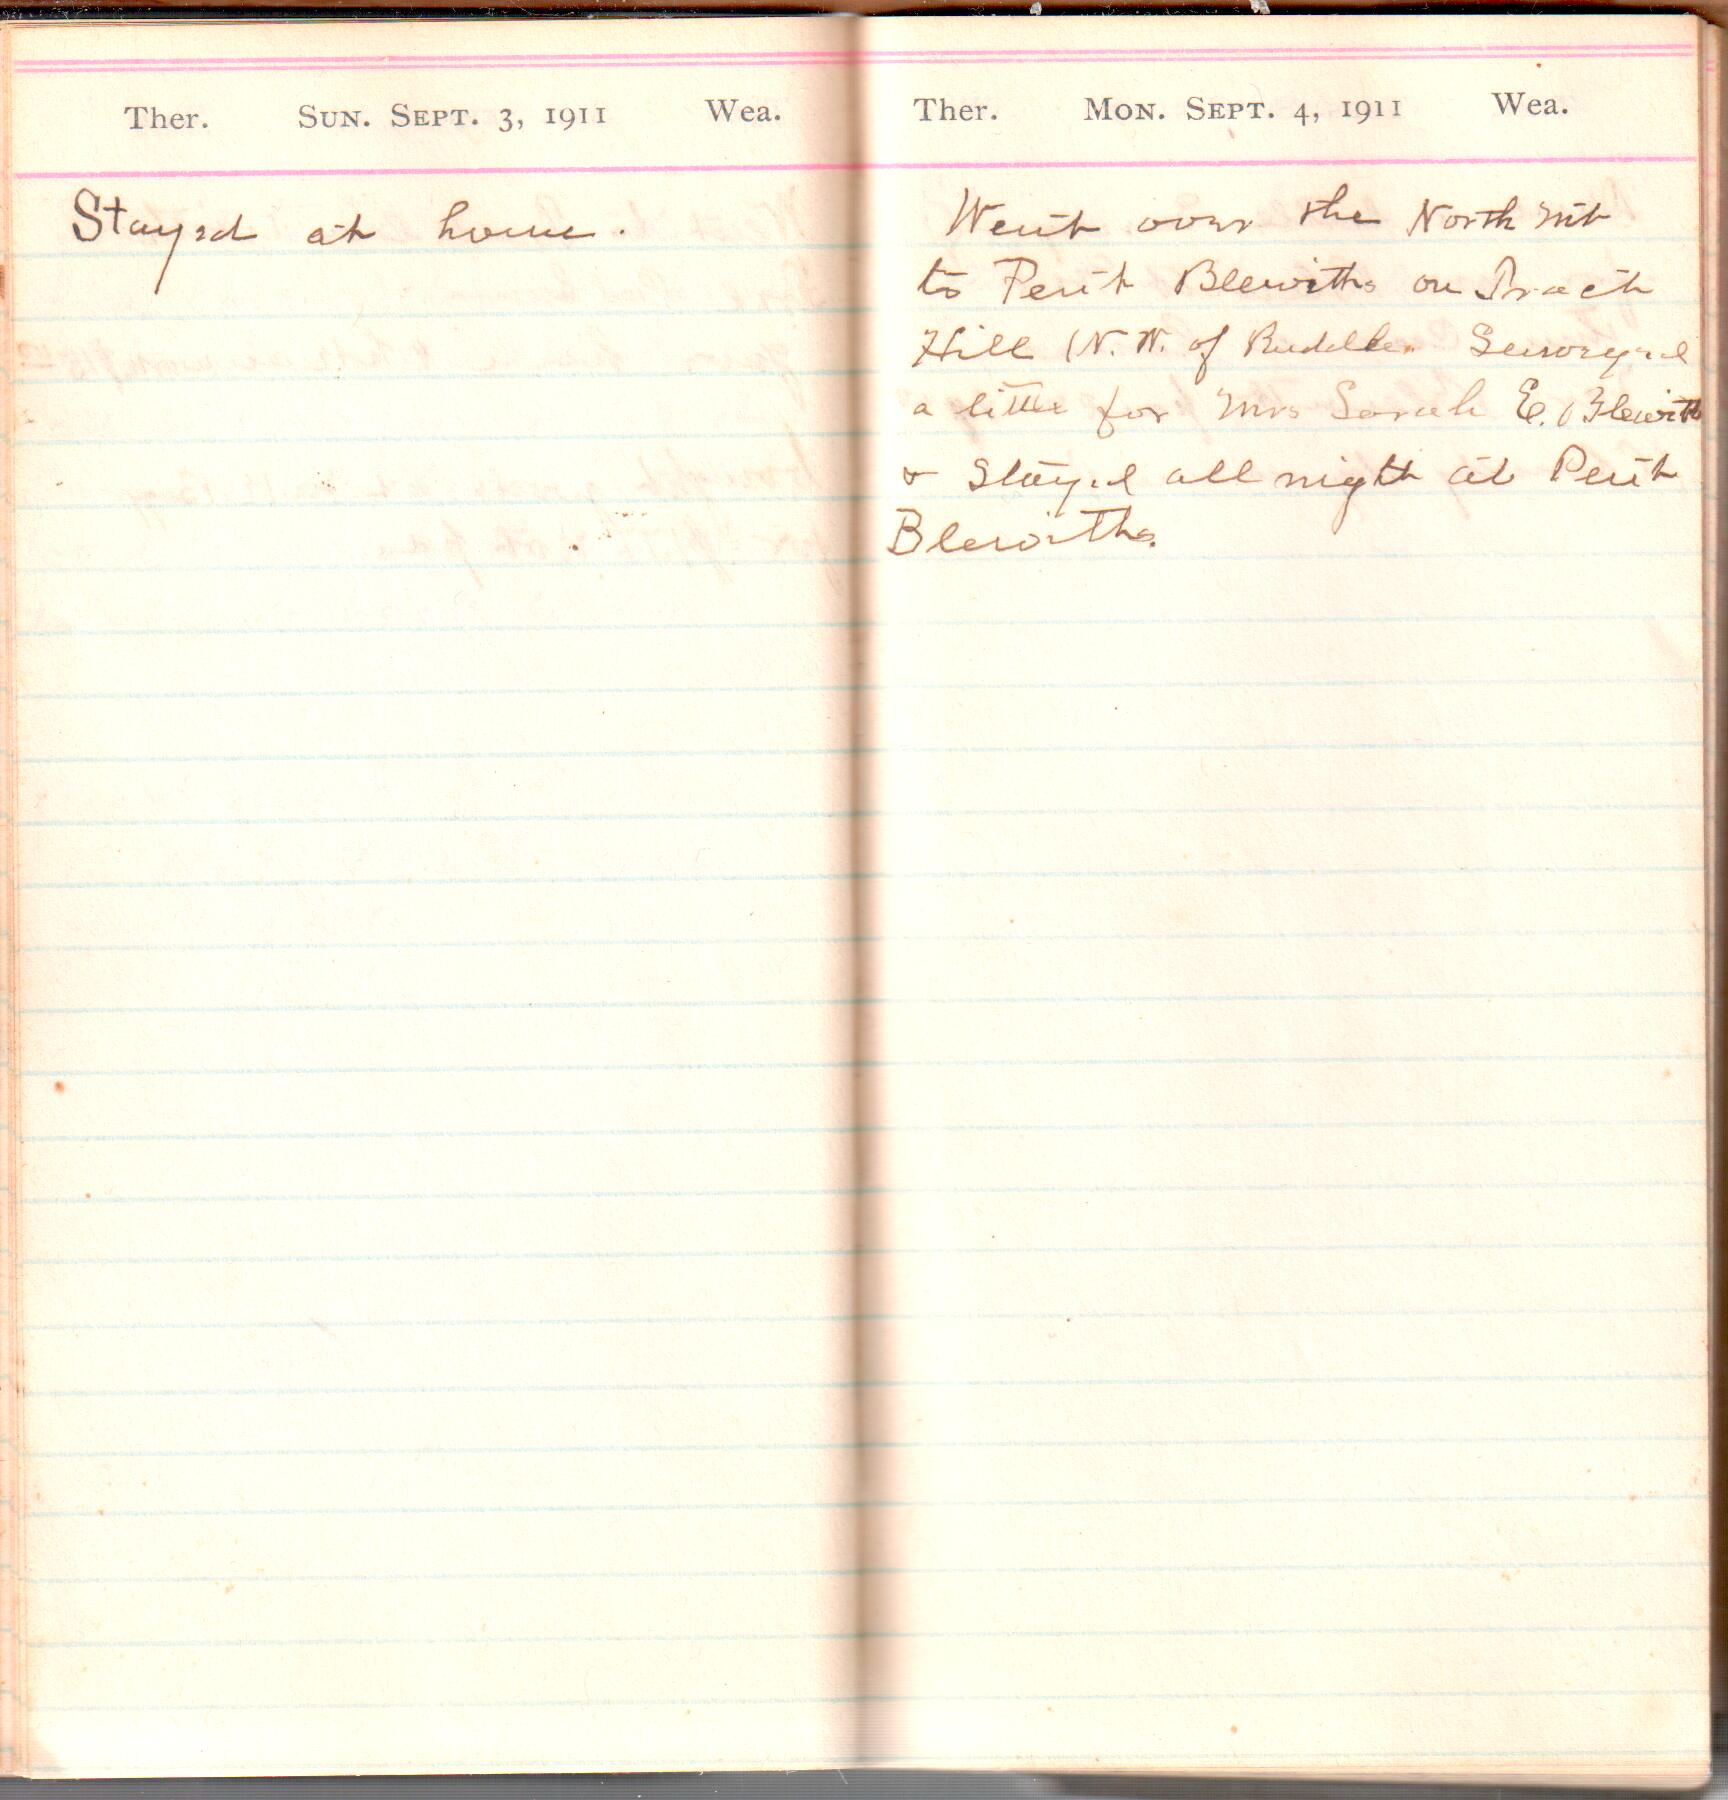 Ther. Sun. Sept. 3, 1911 Wea.
Stayed at home.
Ther. Mon. Sept. 4, 1911 Wea.
Went over the North Mt
to Perit Blewitts on Tract
Hill (N.W. of Ruddle. Surveyed
a little for Mrs Sarah E. Blewitt
& Stayed all night at Perit
Blewitts.